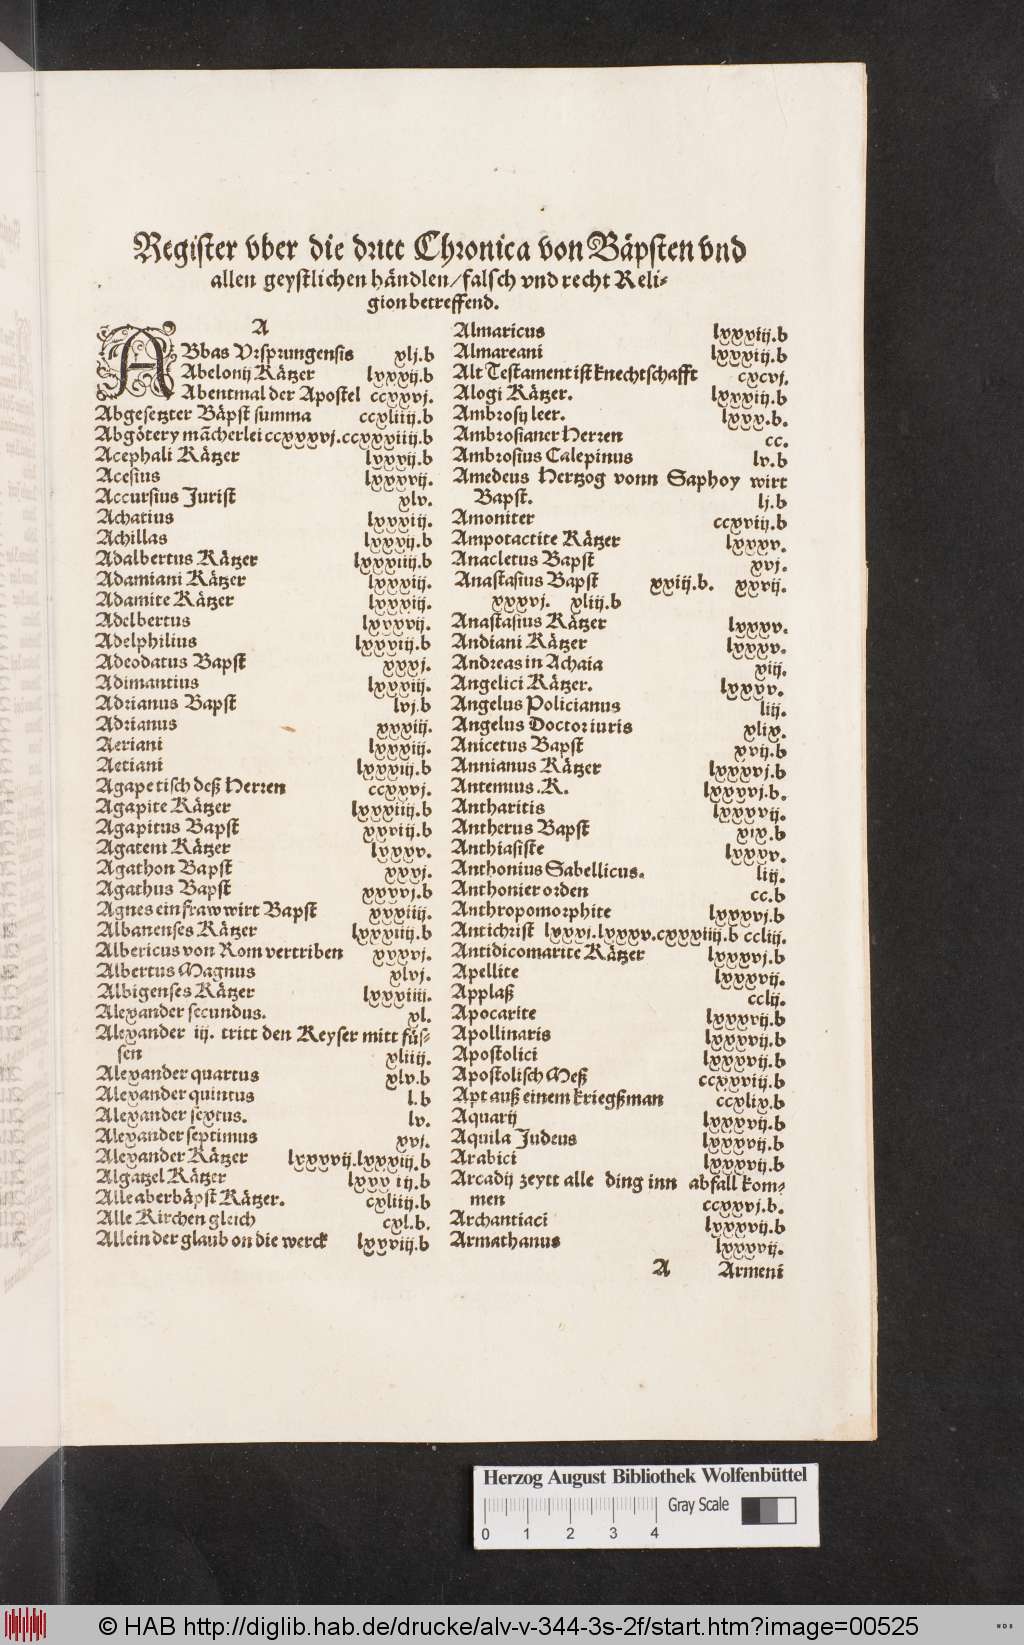 Register vber die dritt Chronica von Bäpsten vnd
allen geystlichen händlen/falsch vnd recht Reli-
gion betreffend.
A
ABbas Vrsprungensis xlj.b
Abelonij Kätzer lxxxij.b
Abentmal der Apostel ccxxvj.
Abgesetzter Bäpst summa ccxliiij.b
Abgötery mācherlei ccxxxvj.ccxxxiiij.b
Acephali Kätzer lxxxij.b
Acesius lxxxvij.
Accursius Jurist xlv.
Achatius lxxxiij.
Achillas lxxxij.b
Adalbertus Kätzer lxxxiiij.b
Adamiani Kätzer lxxxiij.
Adamite Kätzer lxxxiij.
Adelbertus lxxxvij.
Adelphilius lxxxiij.b
Adeodatus Bapst xxxj.
Adimantius lxxxiij.
Adrianus Bapst lvj.b
Adrianus xxxiij.
Aeriani lxxxiij.
Aetiani lxxxiij.b
Agapetisch deß Herren ccxxvj.
Agapite Kätzer lxxxiiij.b
Agapitus Bapst xxviij.b
Agateni Kätzer lxxxv.
Agathon Bapst xxxj.
Agathus Bapst xxxvj.b
Agnes ein fraw wirt Bapst xxxiiij.
Albanenses Kätzer lxxxiiij.b
Albericus von Rom vertriben xxxvj.
Albertus Magnus xlvj.
Albigenses Kätzer lxxxiiij.
Alexander secundus. xl.
Alexander iij. tritt den Keyser mitt füs-
sen xliiij.
Alexander quartus xlv.b
Alexander quintus l.b
Alexander sextus. lv.
Alexander septimus xvj.
Alexander Kätzer lxxxvij.lxxxiij.b
Algatzel Kätzer lxxx iij.b
Alle aberbäpst Kätzer. cxliiij.b
Alle Kirchen gleich cxl.b.
Allein der glaub on die werck lxxviij.b
Almaricus lxxxiij.b
Almareani lxxxiij.b
Alt Testament ist knechtschafft cxcvj.
Alogi Kätzer. lxxxiij.b
Ambrosij leer. lxxx.b.
Ambrosianer Herren cc.
Ambrosius Calepinus lv.b
Amedeus Hertzog vonn Saphoy wirt
Bapst. lj.b
Amoniter ccxviij.b
Ampotactite Kätzer lxxxv.
Anacletus Bapst xvj.
Anastasius Bapst xxiij.b. xxvij.
xxxvj. xliij.b
Anastasius Kätzer lxxxv.
Andiani Kätzer lxxxv.
Andreas in Achaia xiij.
Angelici Kätzer. lxxxv.
Angelus Policianus liij.
Angelus Doctor iuris xlix.
Anicetus Bapst xvij.b
Annianus Kätzer lxxxvj.b
Antemius .K. lxxxvj.b.
Antharitis lxxxvij.
Antherus Bapst xix.b
Anthiasiste lxxxv.
Anthonius Sabellicus. liij.
Anthonier orden cc.b
Anthropomorphite lxxxvj.b
Antichrist lxxxj.lxxxv.cxxxiiij.b ccliij.
Antidicomarite Kätzer lxxxvj.b
Apellite lxxxvij.
Applaß cclij.
Apocarite lxxxvij.b
Apollinaris lxxxvij.b
Apostolici lxxxvij.b
Apostolisch Meß ccxxviij.b
Apt auß einem kriegßman ccxlix.b
Aquarij lxxxvij.b
Aquila Judeus lxxxvij.b
Arabici lxxxvij.b
Arcadij zeytt alle ding inn abfall kom-
men ccxxvj.b.
Archantiaci lxxxvij.b
Armathanus lxxxvij.
A Armeni
Herzog August Bibliothek Wolfenbüttel
Gray Scale
0 1 2 3 4
© HAB http://diglib.hab.de/drucke/alv-v-344-3s-2f/start.htm?image=00525